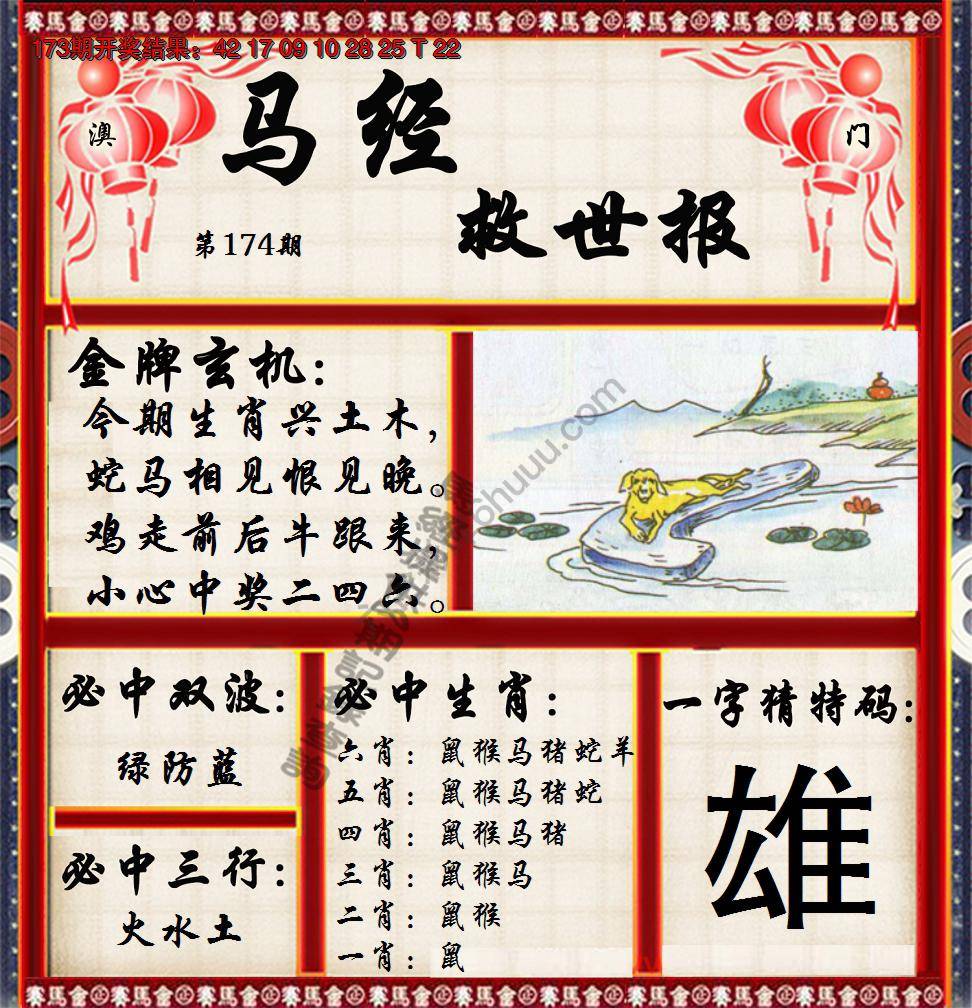 173期开奖结果：42 17 09 10 28 25 T 22
澳
门
马经
救世报
第174期
金牌玄机：
今期生肖兴土木，
蛇马相见恨见晚。
鸡走前后牛跟来，
小心中奖二四六。
必中双波：
绿防蓝
必中三行：
火水土
必中生肖：
六肖：鼠猴马猪蛇羊
五肖：鼠猴马猪蛇
四肖：鼠猴马猪
三肖：鼠猴马
二肖：鼠猴
一肖：鼠
一字猜特码：
雄